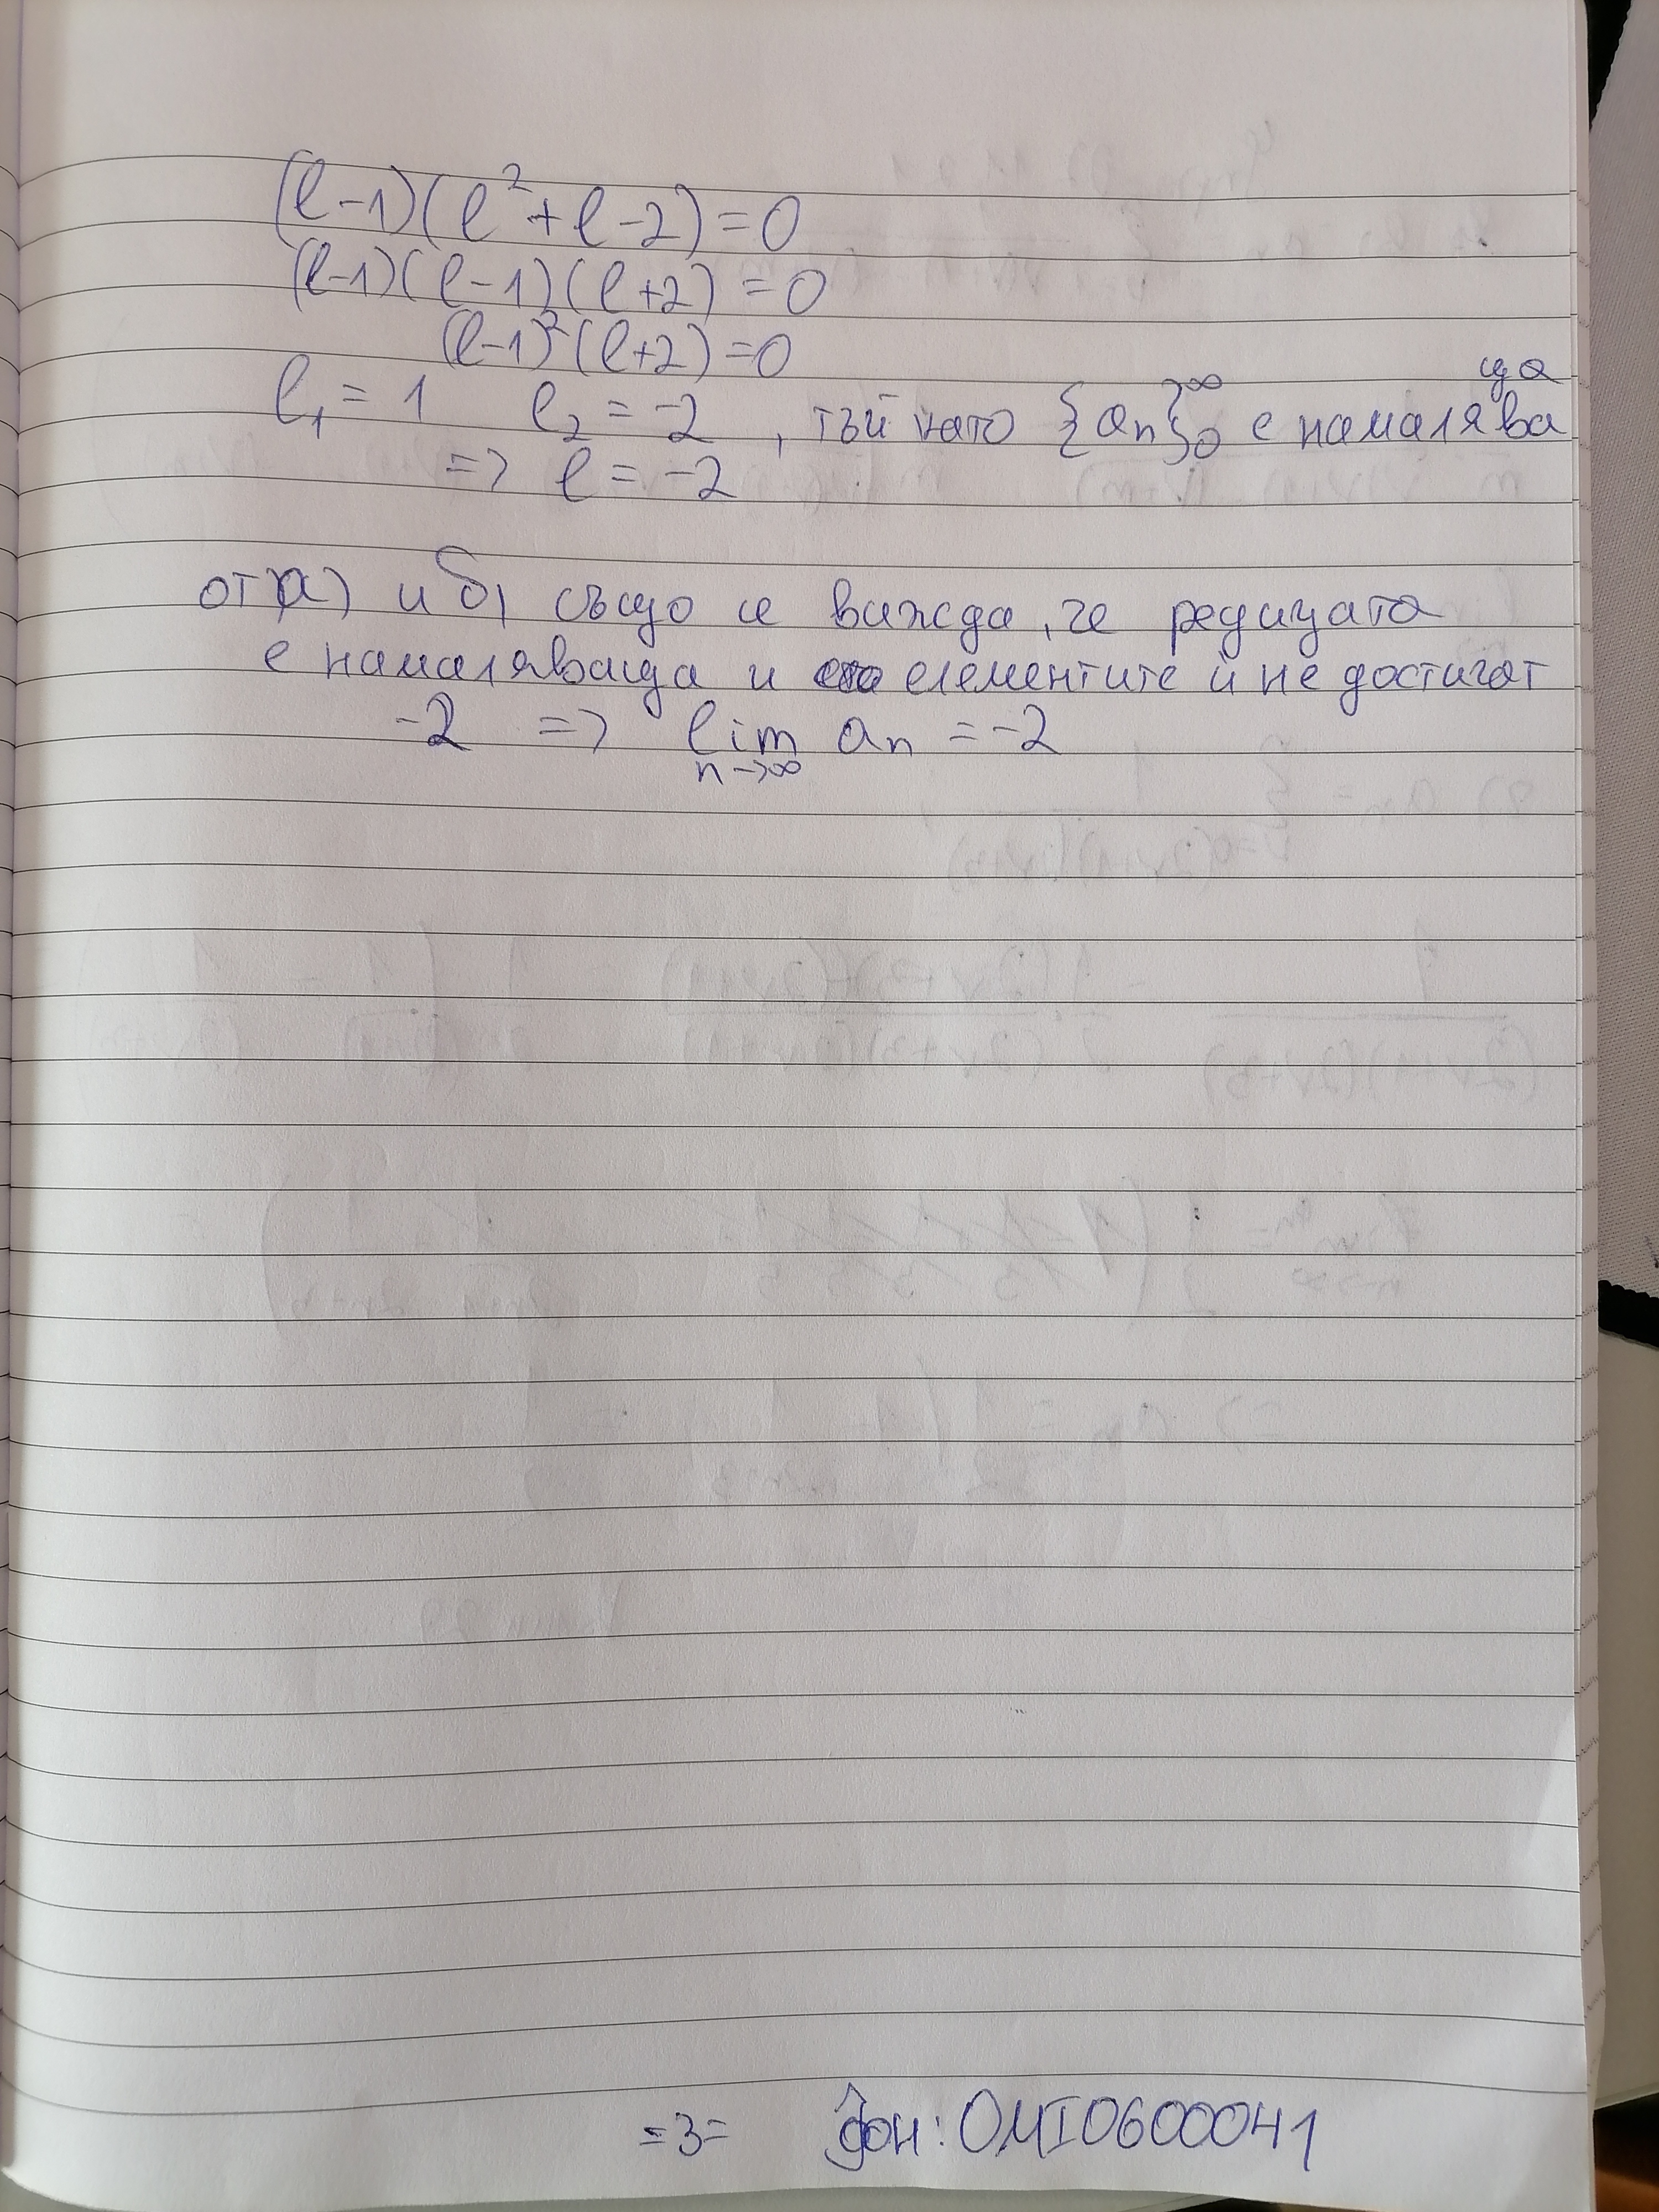 (l-1)(l²+l-2)=0
(l-1)(l-1)(l+2)=0
(l-1)²(l+2)=0
l₁=1 l₂=-2, тъй като {aₙ}₀^∞ е намаляваща
=> l=-2
от а) и б) също се вижда, че редицата
е намаляваща и елементите ѝ не достигат
-2 => lim aₙ = -2
n->∞
=3= фон: 0MI0600041